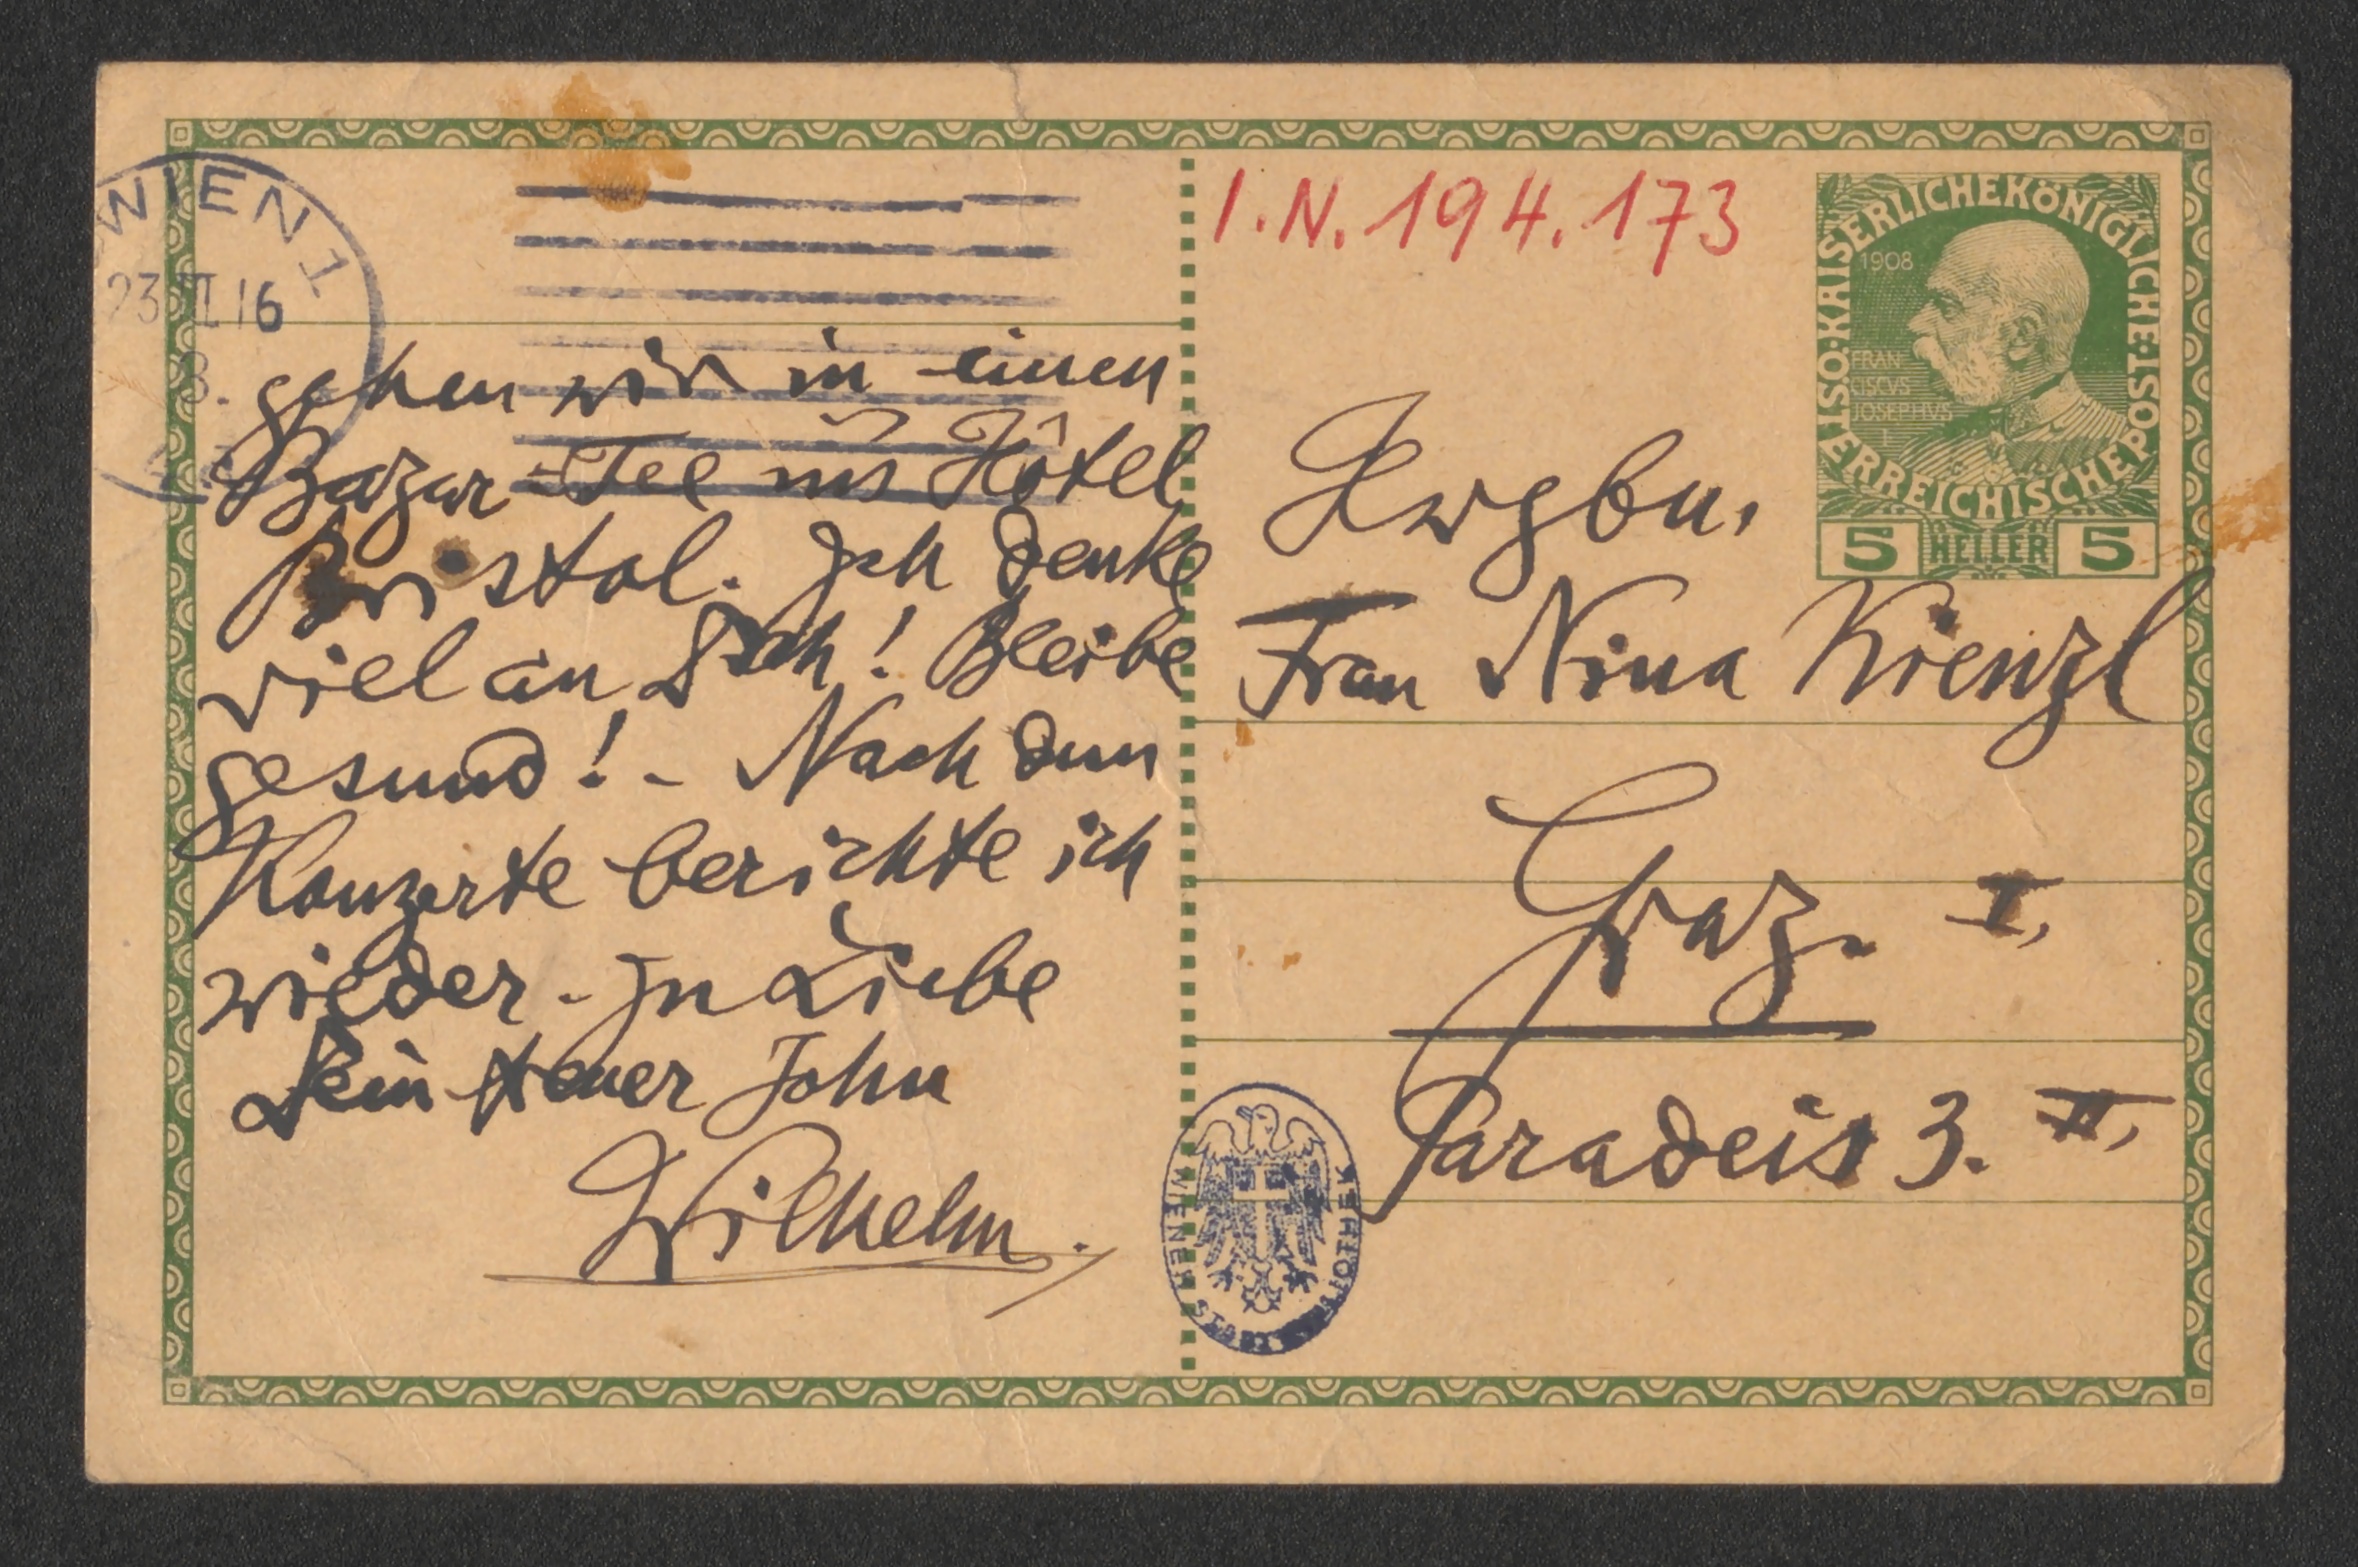 WIEN 1
23. II 16
8.
gehen wir in einen
Bazar-Tee ins Hôtel
Bristol. Ich denke
viel an Dich! Bleibe
gesund! - Nach dem
Konzerte berichte ich
wieder. - In Liebe
Dein treuer Sohn
Wilhelm.
I.N. 194.173
KAISERLICHEKÖNIGLICHE
ÖSTERREICHISCHE POST
1908
FRAN
CISCVS
JOSEPHVS
I
5 HELLER 5
Hwgbn.
Frau Nina Kienzl
Graz. I,
Paradeis 3. II,
WIENER STADTBIBLIOTHEK